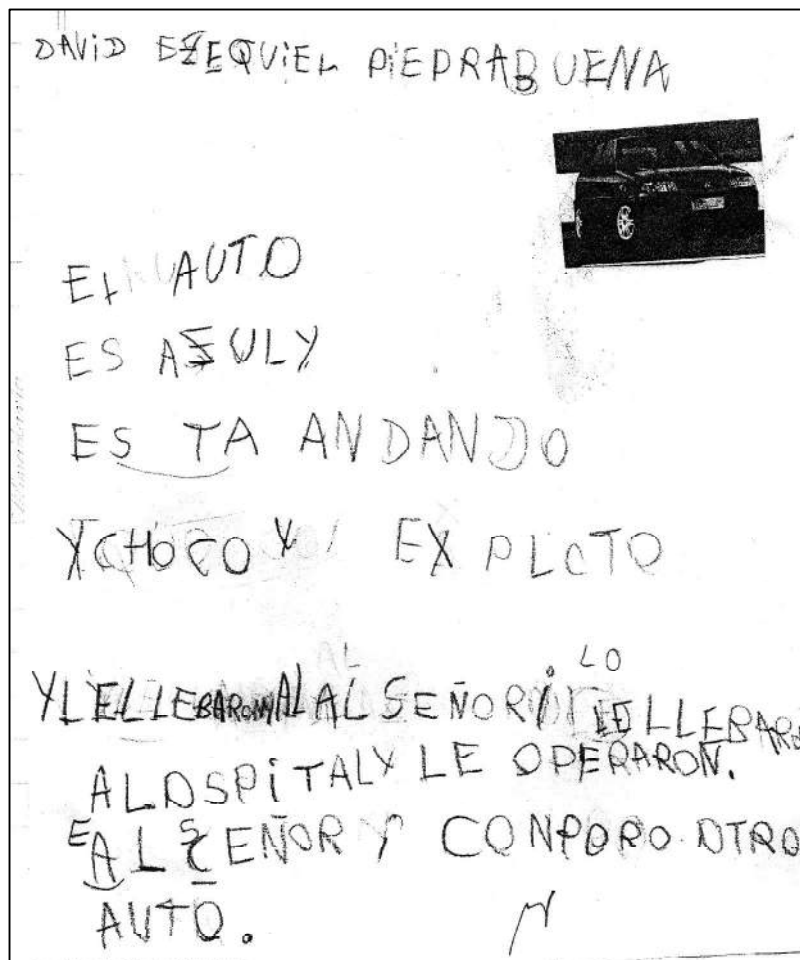 DAViD EZEQUiEL PiEDRABUENA
EL AUTO
ES ASULY
ES TA ANDANDO
YCHOCO Y EX PLOTO
LO
YLELLEBARON AL AL SEÑOR i LE LLEBARO
ALOSPiTALY LE OPERARON.
EAL SEÑOR Y CONPORO OTRO
AUTO.